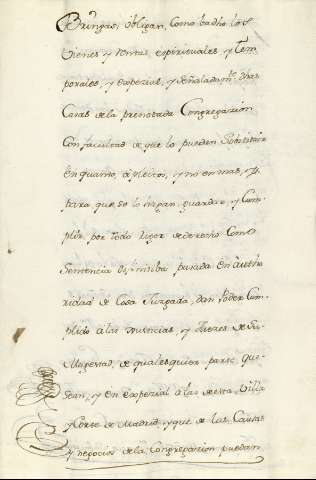 Bringas, obligan, como ba dho los
Vienes y Rentas, espirituales, y Tem
porales, y expezial, y señaladamte. dhas
Casas de la prenotada Congregazion
Con facultad de que lo puedan
en quanto, a pleitos, y no en mas, y p.
para que se lo hagan guardar, y Cum
plir, por todo rigor de derecho como
Sentencia difinitiva pasada en autho
ridad de Cosa Juzgada, dan Poder Cum
plido a las Justicias, y Juezes de Su
Magestad, de qualesquier parte que
sean, y en expezial a las de esta Villa
y Corte de Madrid, y que de las Causas
y negocios de la Congregazion puedan